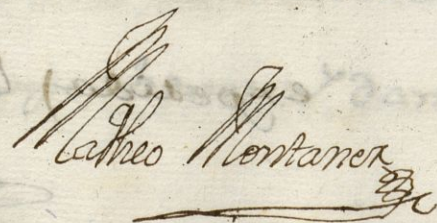 Matheo Montaner